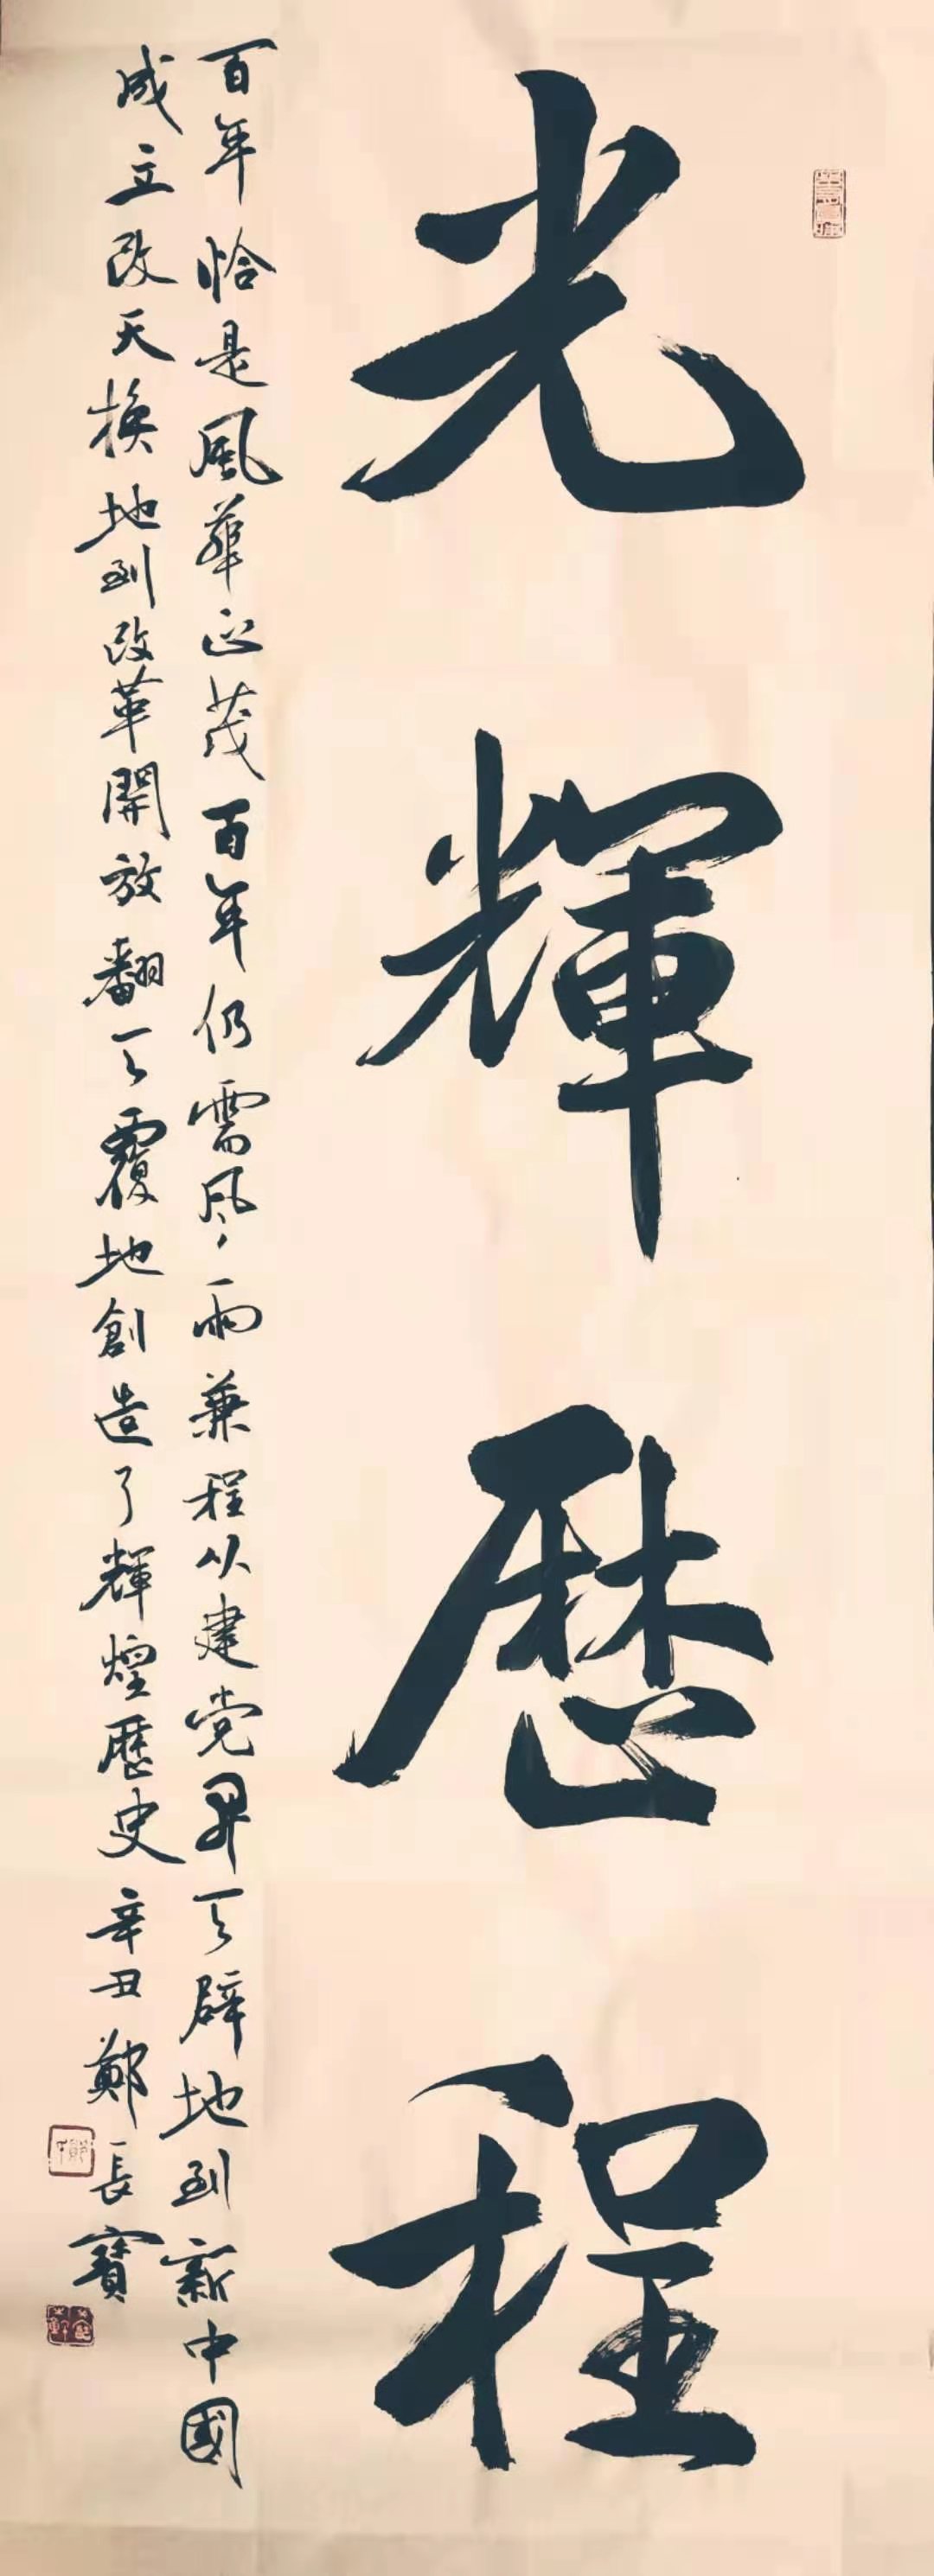 光輝歷程
百年恰是風華正茂百年仍需风雨兼程从建党開天辟地到新中國
成立改天換地到改革開放翻天覆地創造了輝煌歷史辛丑鄭長寶